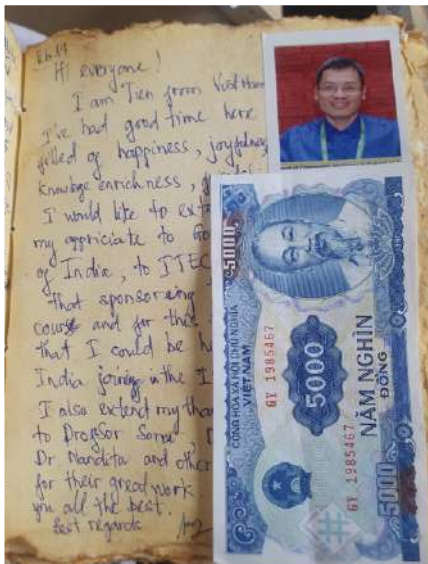 Hi everyone!
I am Tien from Viet Nam
I've had good time here
filled of happiness, joyfulness,
knowledge enrichness,
I would like to exte
my appriciate to Go
of India, to ITEC
that sponsoring
course and for this
that I could be h
India joining in the I
I also extend my than
to Profssor Soma,
Dr. Nandita and other
for their great work
you all the best.
Best regards
5000
CỘNG HÒA XÃ HỘI CHỦ NGHĨA
VIỆT NAM
GY 1985467
5000
NĂM NGHÌN
ĐỒNG
GY 1985467
5000